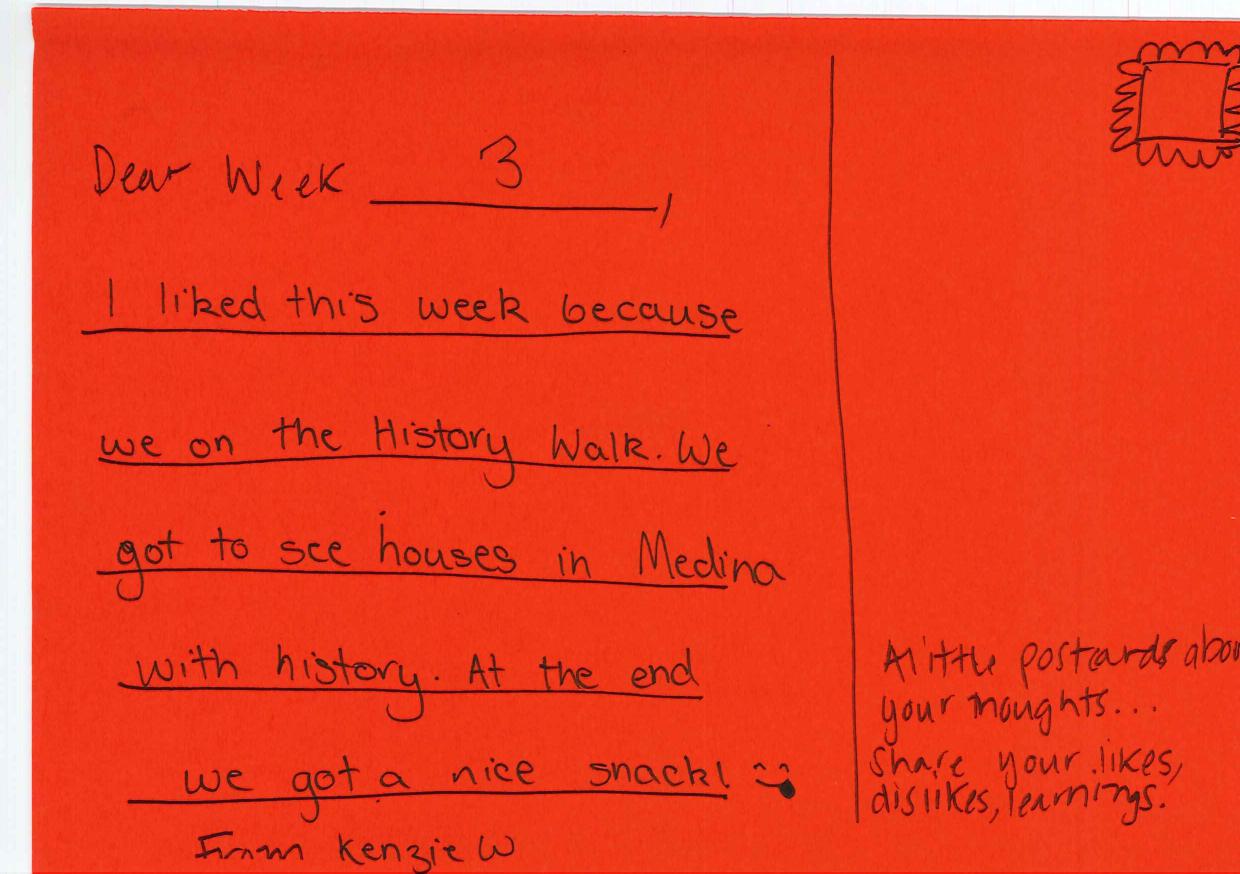 Dear Week 3,
I liked this week because
we on the History Walk. We
got to see houses in Medina
with history. At the end
we got a nice snack!
From Kenzie W
A little postcards
your thoughts...
share your likes,
dislikes, learnings.